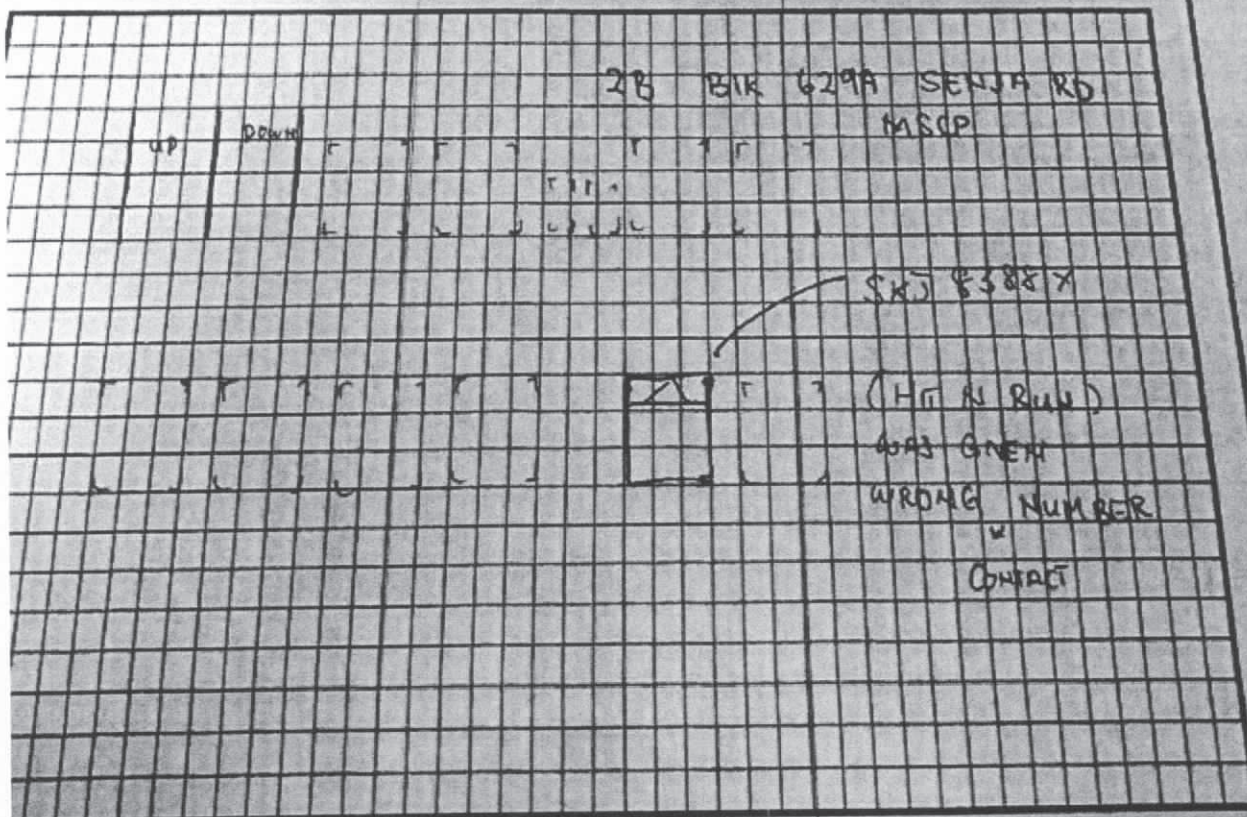 2B BLK 629A SENJA RD
MSCP
UP DOWN
SKJ 8388X
(HIT N RUN)
WAS GIVEN
WRONG NUMBER
CONTACT